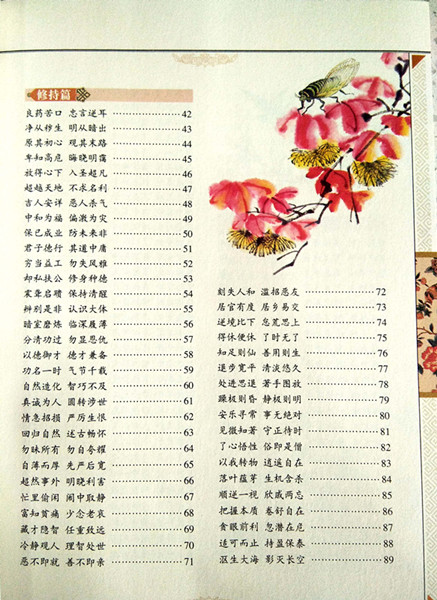 修持篇
良药苦口 忠言逆耳 42
净从秽生 明从暗出 43
原其初心 观其末路 44
卑知高危 晦晓明蔼 45
放得心下 入圣超凡 46
超越天地 不求名利 47
吉人安详 恶人杀气 48
中和为福 偏激为灾 49
保已成业 防未来非 50
君子德行 其道中庸 51
穷当益工 勿失风雅 52
却私扶公 修身种德 53
震聋启聩 保持清醒 54
辨别是非 认识大体 55
暗室磨炼 临深履薄 56
分清功过 勿显恩仇 57
以德御才 德才兼备 58
功名一时 气节千载 59
自然造化 智巧不及 60
真诚为人 圆转涉世 61
情急招损 严厉生恨 62
回归自然 述古畅怀 63
勿昧所有 勿自夸耀 64
自薄而厚 先严后宽 65
超然事外 明晓利害 66
忙里偷闲 闹中取静 67
富知贫痛 少念老哀 68
藏才隐智 任重致远 69
冷静观人 理智处世 70
恶不即就 善不即亲 71
刻失人和 滥招恶友 72
居官有度 居乡易交 73
逆境比下 怠荒思上 74
得休便休 了时无了 75
知足则仙 善用则生 76
退步宽平 清淡悠久 77
处进思退 著手图放 78
躁极则昏 静极则明 79
安乐寻常 事无绝对 80
见微知著 守正待时 81
了心悟性 俗即是僧 82
以我转物 逍遥自在 83
落叶蕴芽 生机含杀 84
顺逆一视 欣戚两忘 85
把握本质 卷舒自在 86
贪眼前利 忽潜在危 87
适可而止 持盈保泰 88
沤生大海 影灭长空 89